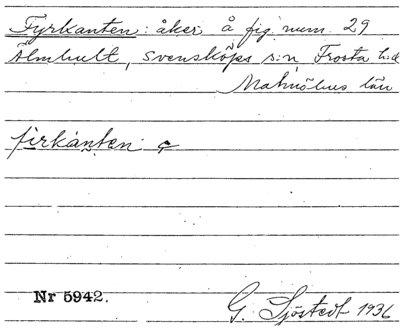 Fyrkanten: åker å fig num. 29
Ölmhult, Svensköps s:n Frosta h:d
Malmöhus län
fìrkánten: 
Nr 5942.
G. Sjöstedt 1936